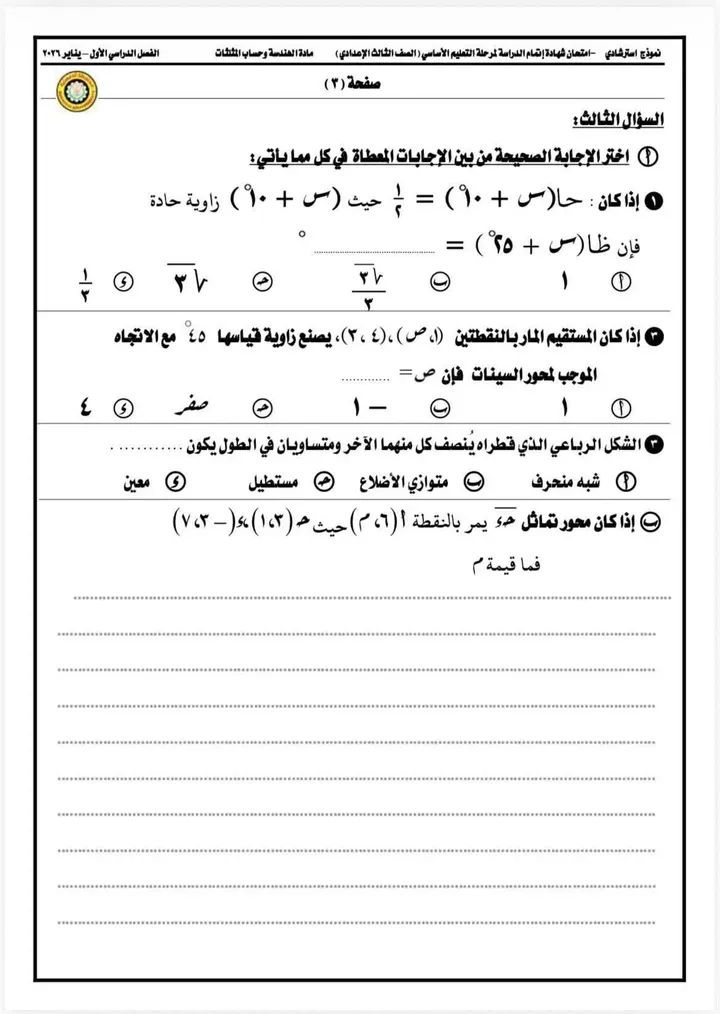 نموذج استرشادي –امتحان شهادة إتمام الدراسة لمرحلة التعليم الأساسي (الصف الثالث الإعدادي) مادة الهندسة وحساب المثلثات الفصل الدراسي الأول – يناير ٢٠٢٦
صفحة (٣)
السؤال الثالث:
أ اختر الإجابة الصحيحة من بين الإجابات المعطاة في كل مما يأتي:
١ إذا كان : حا(س + ١٠°) = ١/٢ حيث (س + ١٠°) زاوية حادة
فإن ظا(س + ٢٥°) = .................... °
أ ١ ب √٣/٣ حـ √٣ ء ١/٣
٢ إذا كان المستقيم المار بالنقطتين (١، ص)، (٤، ٣)، يصنع زاوية قياسها ٤٥° مع الاتجاه
الموجب لمحور السينات فإن ص= ............
أ ١ ب – ١ حـ صفر ء ٤
٣ الشكل الرباعي الذي قطراه يُنصف كل منهما الآخر ومتساويان في الطول يكون ............ .
أ شبه منحرف ب متوازي الأضلاع حـ مستطيل ء معين
ب إذا كان محور تماثل حـء يمر بالنقطة أ(٦، م) حيث حـ(٣، ١)، ء(–٣، ٧)
فما قيمة م